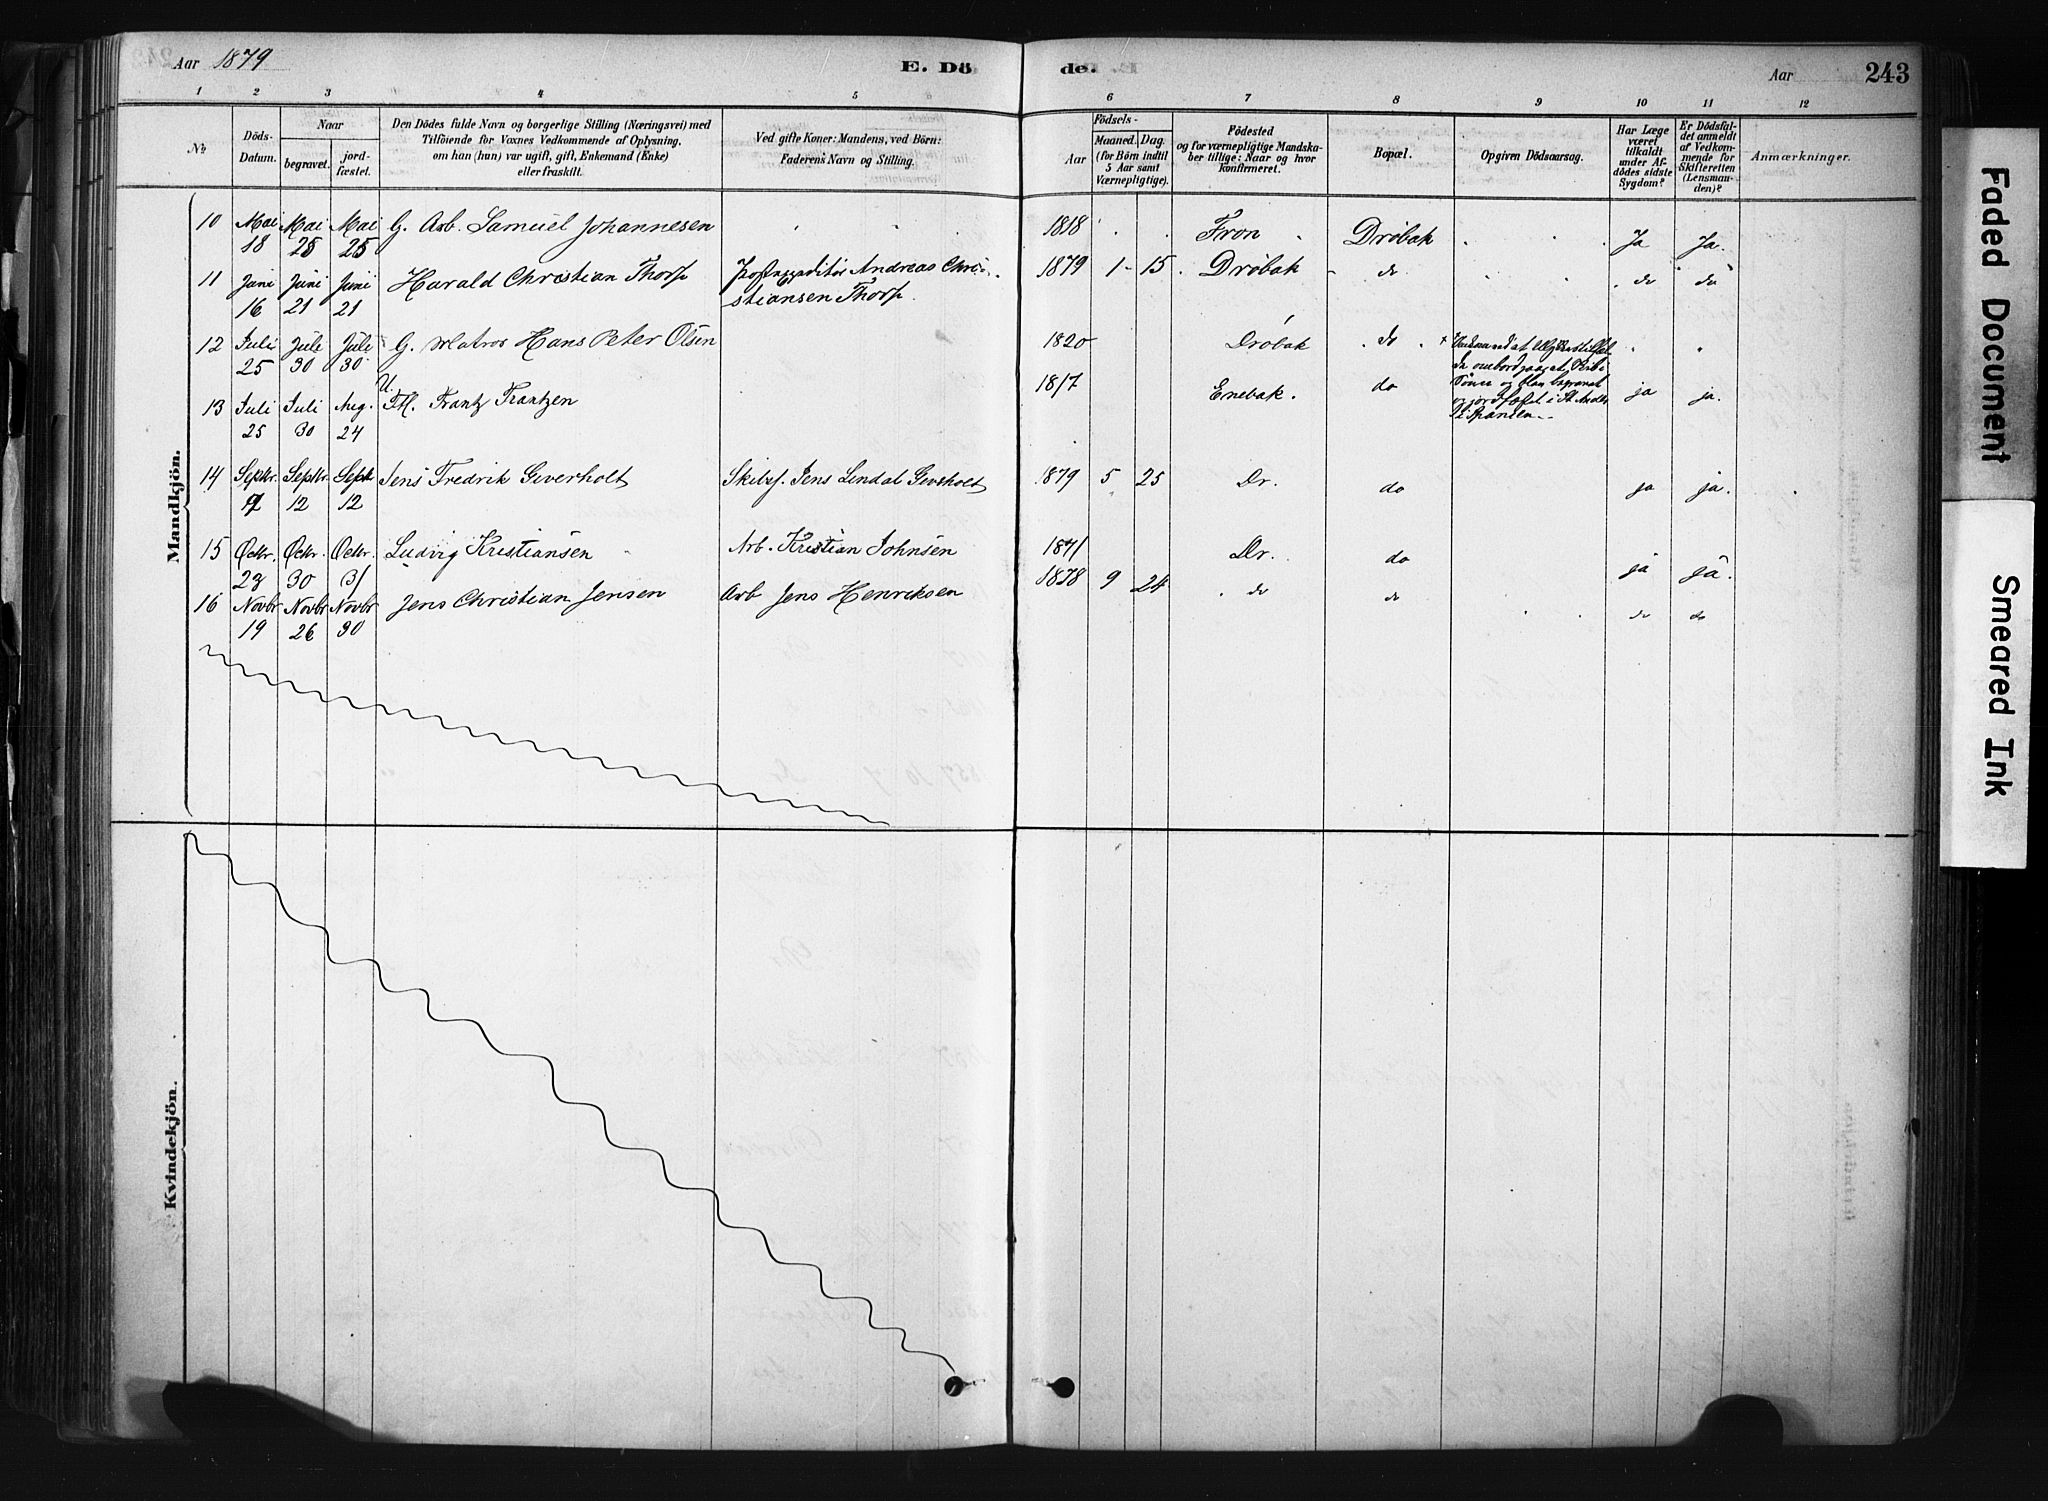 Aar 1879
E. Dö
de.
Aar
243
1 2 3 4 5 6 7 8 9 10 11 12
№
Döds-
Datum.
Naar
begravet.
jord-
fæstet.
Den Dödes fulde Navn og borgerlige Stilling (Næringsvei) med
Tilföiende for Voxnes Vedkommende af Oplysning,
om han (hun) var ugift, gift, Enkemand (Enke)
eller fraskilt.
Ved gifte Koner: Mandens, ved Börn:
Faderens Navn og Stilling.
Födsels-
Aar
Maaned.
Dag.
(for Börn indtil
5 Aar samt
Værnepligtige).
Födested
og for værnepligtige Mandska-
ber tillige: Naar og hvor
konfirmeret.
Bopæl.
Opgiven Dödsaarsag.
Har Læge
været
tilkaldt
under Af-
dödes sidste
Sygdom?
Er Dödsfal-
det anmeldt
af Vedkom-
mende for
Skifteretten
(Lensman-
den)?
Anmærkninger.
Mandkjön.
10 Mai 18 Mai 25 Mai 25 G. Arb. Samuel Johannesen 1818 Fron Drøbak Ja Ja.
11 Juni 16 Juni 21 Juni 21 Harald Christian Thorp Postexpeditør Andreas Chri-
stiansen Thorp. 1879 1 15 Drøbak do do do
12 Juli 25 Juli 30 Juli 30 G. Matros Hans Peter Olsen 1820 Drøbak do
13 Juli 25 Juli 30 Aug. 24 U. Frantz Frantzen 1817 Enebak. do ja ja.
14 Septbr. Septbr. 12 Septbr 12 Jens Fredrik Geverholt Skibsf. Jens Lindal Geverholt 1879 5 25 Dr. do ja ja.
15 Octbr. 23 Octbr. 30 Octbr. 31 Ludvig Kristiansen Arb. Kristian Johnsen 1871 Dr. do ja ja.
16 Novbr 19 Novbr 26 Novbr 30 Jens Christian Jensen Arb Jens Henriksen 1878 9 24 do do do do
Kvindekjön.
Faded Document
Smeared Ink